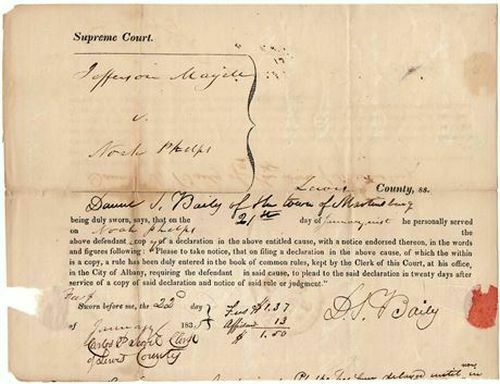 Supreme Court.
Jefferson
v.
Noah Phelps
Lewis County, ss.
Daniel S. Baily of the town of Martinsburg
being duly sworn, says, that on the 21st day of January inst he personally served
on Noah Phelps
the above defendant copy of a declaration in the above entitled cause, with a notice endorsed thereon, in the words
and figures following: "Please to take notice, that on filing a declaration in the above cause, of which the within
is a copy, a rule has been duly entered in the book of common rules, kept by the Clerk of this Court, at his office,
in the City of Albany, requiring the defendant in said cause, to plead to the said declaration in twenty days after
service of a copy of said declaration and notice of said rule or judgment."
Sworn before me, the 22d day
of January 183
Clerk
of Lewis County
Fees $1.37
Affidavit 13
$ 1.50
D. S. Baily
Phelps has been delayed until